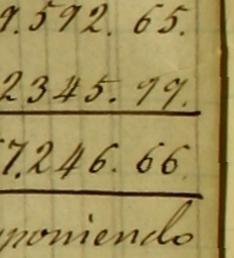 9.592. 65.
2345. 99.
7.246. 66
poniendo